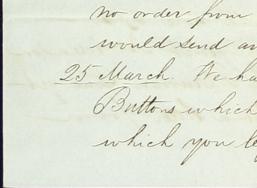 no order from
would send an
25 March. We ha
Buttons which
which you le